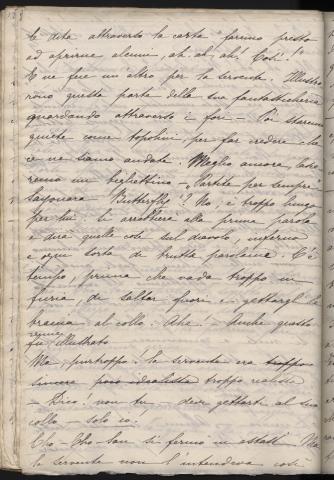 le dita attraverso la carta "faremo presto
ad aprirne alcuni, ah, ah, ah! Così!"
E ne fece un altro per la servente. Illustra-
rono questa parte della sua fantasticheria
guardando attraverso i fori — Poi staremo
quiete come topolini per far credere che
ce ne siamo andate. Meglio ancora, lasce-
remo un bigliettino — "Partite per sempre
Sayonara Butterfly"! No; è troppo lungo
per lui. Si arresterà alla prima parola
e dirà quelle cose sul diavolo, inferno
e ogni sorta di brutte parolaccie. C'è
tempo, prima che vada troppo in
furia, de saltar fuori e gettargli le
braccia al collo. Ahe. — Anche questo
venne
fu illustrato
Ma, purtroppo! la servente era troppo
sincera poco idealista troppo realista
— Dico! non tu — devi gettarti al suo
collo — solo io.
Cho-Cho-San si fermò in estasi. Ma
la servente non l'intendeva così